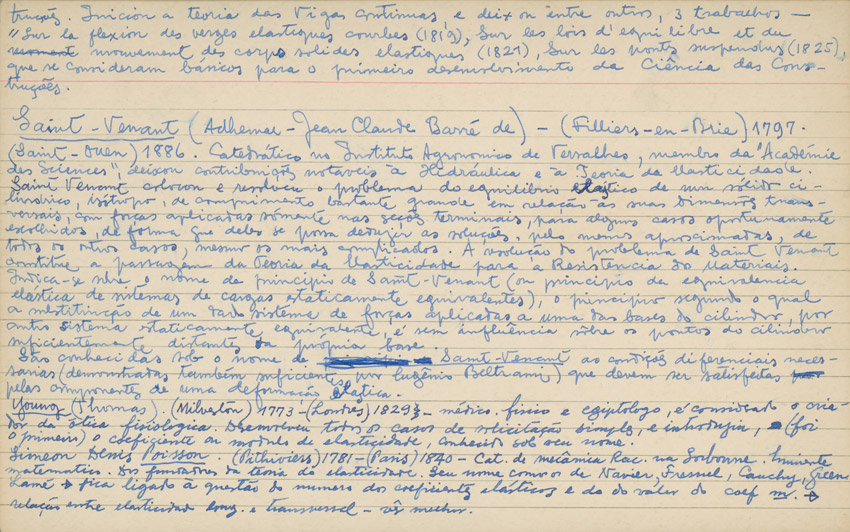 truções. Iniciou a teoria das Vigas continuas, e deixou entre outros, 3 trabalhos —
"Sur la flexion des verges elastiques courbes (1819), Sur les lois d'equilibre et du
mouvement des corps solides elastiques (1821), Sur les ponts suspendus (1825),
que se consideram básicos para o primeiro desenvolvimento da Ciência das Cons-
truções.
Saint-Venant (Adhemar-Jean Claude Barré de) — (Filliers-en-Brie) 1797.
(Saint-Ouen) 1886. Catedrático no Instituto Agronomico de Versalhes, membro da "Académie
des Sciences", deixou contribuições notaveis à Hidráulica e à Teoria da Elasticidade.
Saint Venant colocou e resolveu o problema do equilibrio elastico de um sólido ci-
líndrico, isótropo, de comprimento bastante grande em relação às suas dimensões trans-
versais, com forças aplicadas sómente nas seções terminais, para alguns casos oportunamente
escolhidos, de forma que deles se possa deduzir as soluções, pelo menos aproximadas, de
todos os outros casos, mesmo os mais complicados. A resolução do problema de Saint Venant
constitue a passagem da Teoria da Elasticidade para a Resistencia do Materiais.
Indica-se sobre o nome de principio de Saint-Venant (ou principio da equivalencia
elastica de sistemas de cargas estaticamente equivalentes), o principio segundo o qual
a substituição de um dado sistema de forças aplicadas a uma das bases do cilindro, por
outro sistema estaticamente equivalente, é sem influência sôbre os pontos do cilindro
suficientemente distantes da própria base.
São conhecidas sob o nome de Saint-Venant as condições diferenciais neces-
sarias (demonstradas também suficientes por Eugênio Beltrami) que devem ser satisfeitas
pelas componentes de uma deformação elastica.
Young (Thomas). (Milverton) 1773-(Londres) 1829 — médico, fisico e egiptologo, é considerado o cria-
dor da ótica fisiologica. Desenvolveu todos os casos de solicitação simples, e introduziu, (foi
o primeiro) o coeficiente ou modulo de elasticidade, conhecido sob seu nome.
Simeon Denis Poisson. (Pithiviers) 1781-(Paris) 1840 — Cat. de mecânica Rac. na Sorbonne. Eminente
matematico. Dos fundadores da teoria da elasticidade. Seu nome como os de Navier, Fresnel, Cauchy, Green
Lamé fica ligado à questão do numero dos coeficientes elásticos e do do valor do coef m.
relação entre elasticidade long. e transversal — vê melhor.